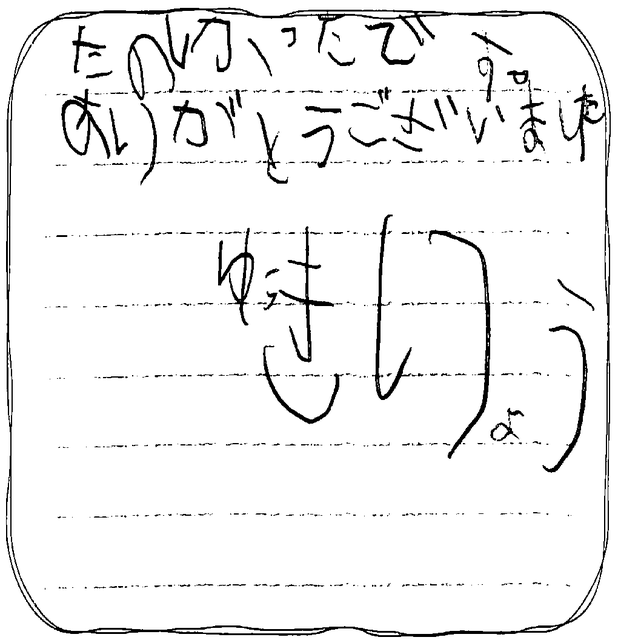 たのしかったです。
ありがとうございました
ゆうきりょう